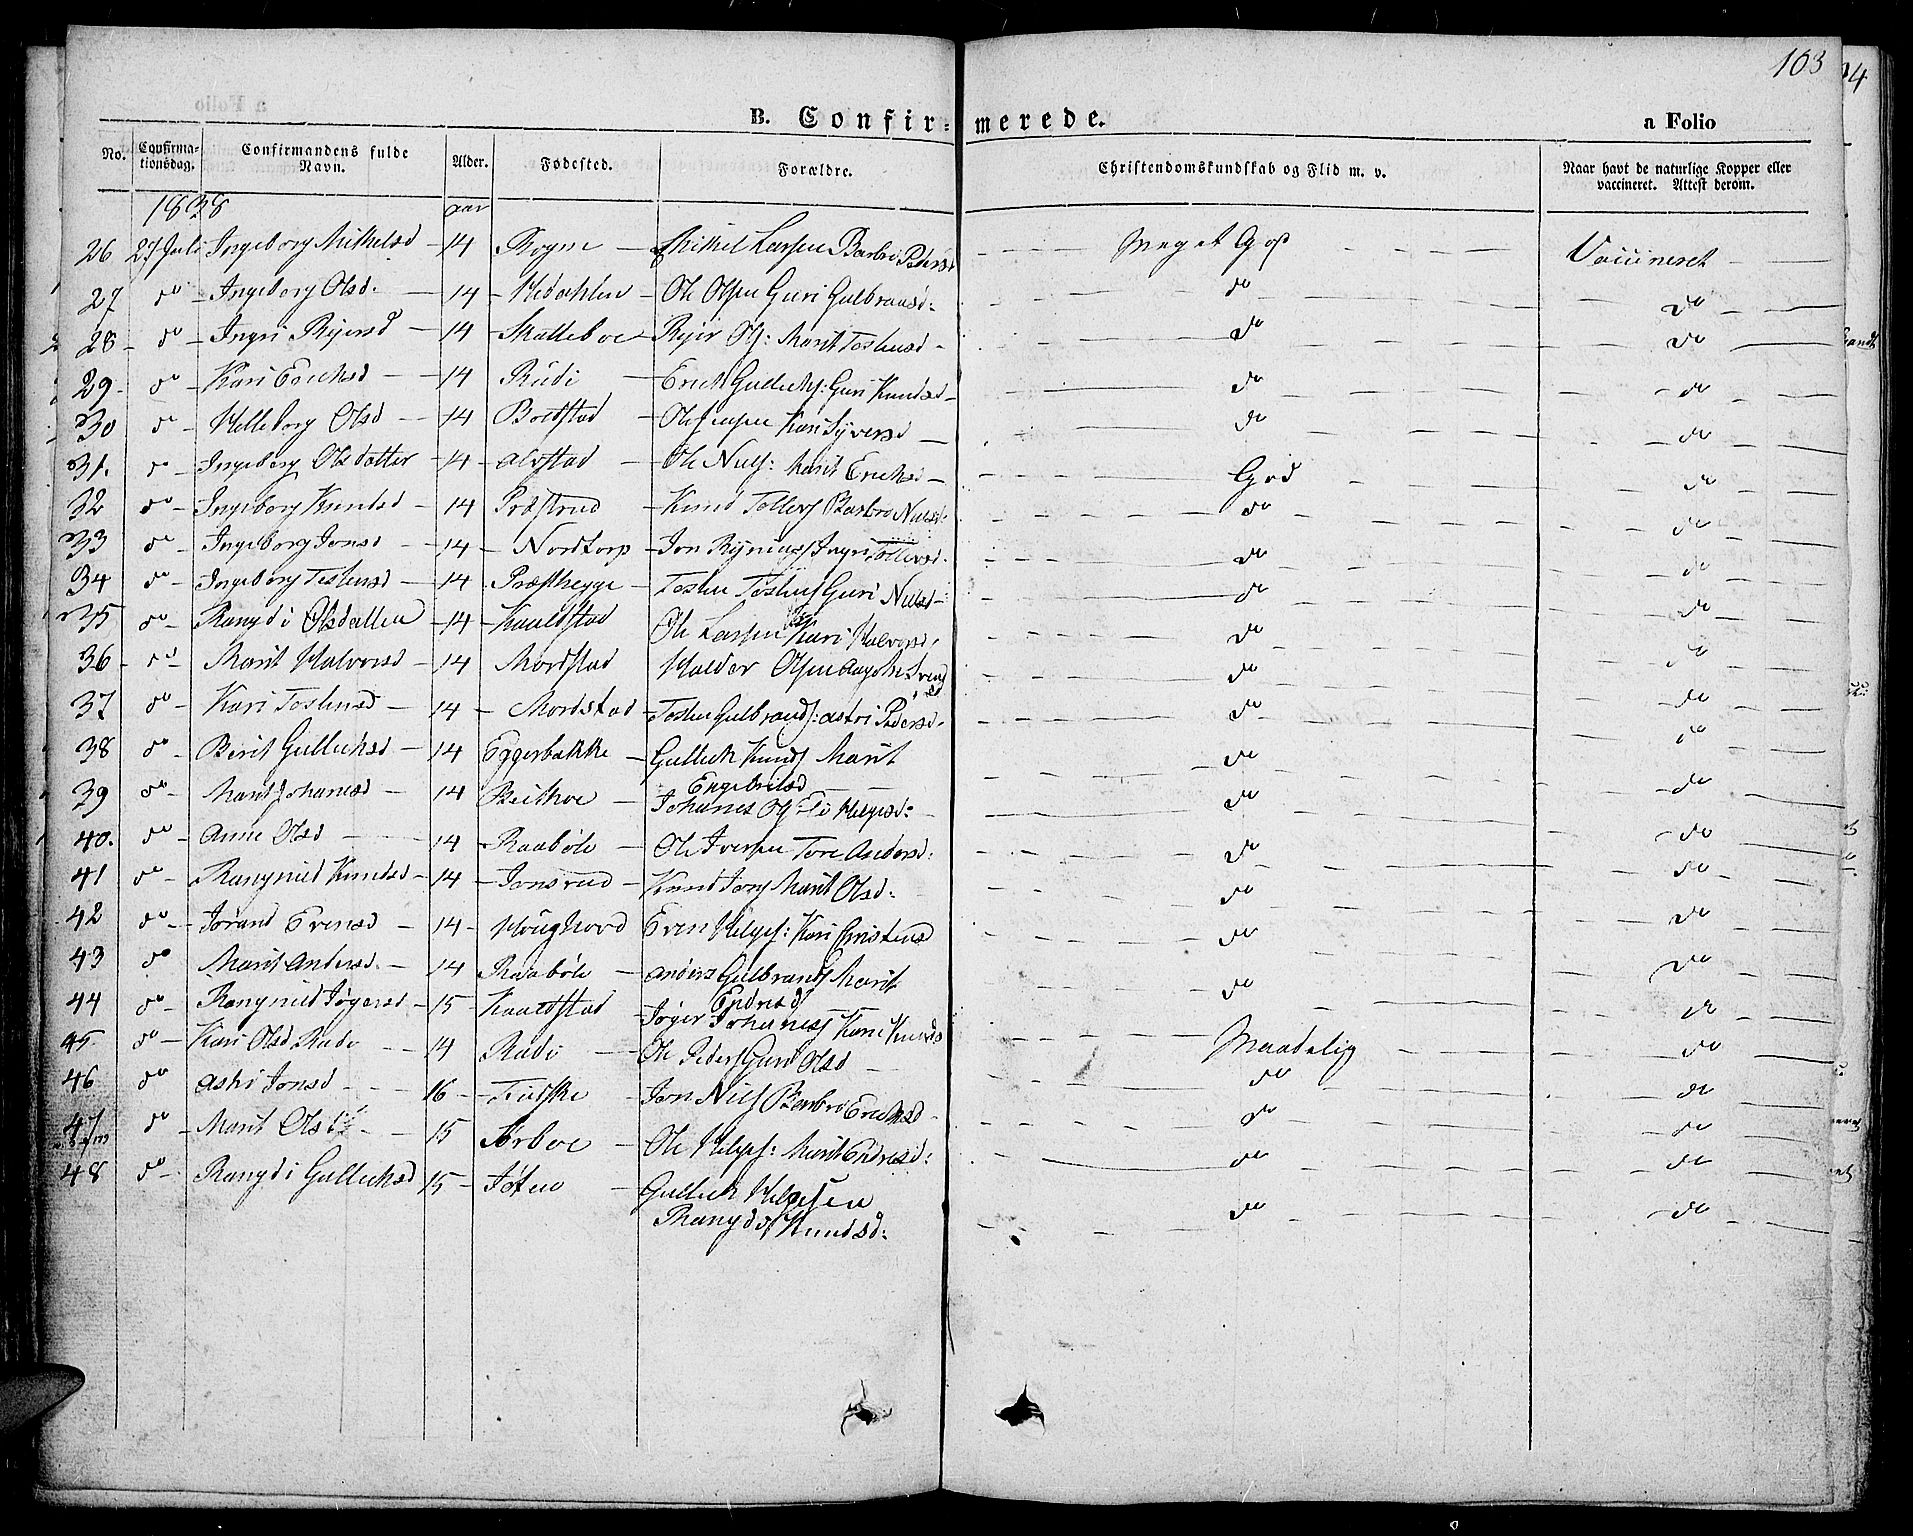 103
B. Confirmerede. a Folio
No. Confirmationsdag. Confirmandens fulde Navn. Alder. Fødested. Forældre. Christendomskundskab og Flid m. v. Naar havt de naturlige Kopper eller vaccineret. Attest derom.
1838 aar
26 27 Juli Ingeborg Mikelsd 14 Rogne Mikkel Larsen Barbro Pedersd Meget God Vaccineret
27 do Ingeborg Olsd. 14 Hedahlen Ole Olsen Guri Gulbrandsd: do do
28 do Ingri Rejersd 14 Skatteboe Rejer Ols: Marit Tostensd do do
29. do Kari Ericksd 14 Rudi Erick Gullicks: Guri Knudsd do do
30 do Helleborg Olsd 14 Boedstad Ole Kari Syversd do do
31. do Ingeborg Olsdatter 14 Alvstad Ole Niels: Marit Ericksd God do
32 do Ingeborg Knudsd 14 Præstrud Knud Tollevs Barbro Nielsd: do do
33 do Ingeborg Jonsd 14 Nordtorp Jon Ingri Tollevsd. do do
34 do Ingeborg Tostensd 14 Præsthegge Tosten Tostens Guri Nielsd: do do
35 do Rangdi Olsdatter 14 Kaaldstad Ole Larsen Kari Halvorsd. do do
36 do Marit Halvorsd 14 Mordstad Halvor Olsen do do
37 do Kari Tostensd 14 Mordstad Tosten Gulbrands: Astri Pedersd. do do
38 do Berit Gullicksd 14 Eggerbakke Gullick Knuds Marit do do
Engebretsd
39 do Marit Johanesd 14 Beithoe Johanes Ols Eli Helgesd: do do
40. do Anne Olsd 14 Raabøle Ole Iversen Tore Andersd: do do
41 do Rangnild Knudsd 14 Jonsrud Knud Jons Marit Olsd: do do
42 do Jorand Evensd 14 Houghovd Even Helges: Kari Christensd do do
43 do Marit Andersd. 14 Raabøle Anders Gulbrands Marit do do
Endresd
44 do Rangnild Jøgersd 15 Kaaldstad Jøger Johaness Kari Knudsd do do
45 do Kari Olsd Rudi 14 Rudi Ole Peders Guri Olsd Maadelig do
46 do Astri Jonsd 16 Fiidske Jon Niels Barbro Ericksd do do
47 do Marit Olsd 15 Sørboe Ole Helges: Marit Endresd: do do
48 do Rangdi Gullicksd 15 Jøten Gullick Helgesen do do
Rangdi Knudsd:
do do